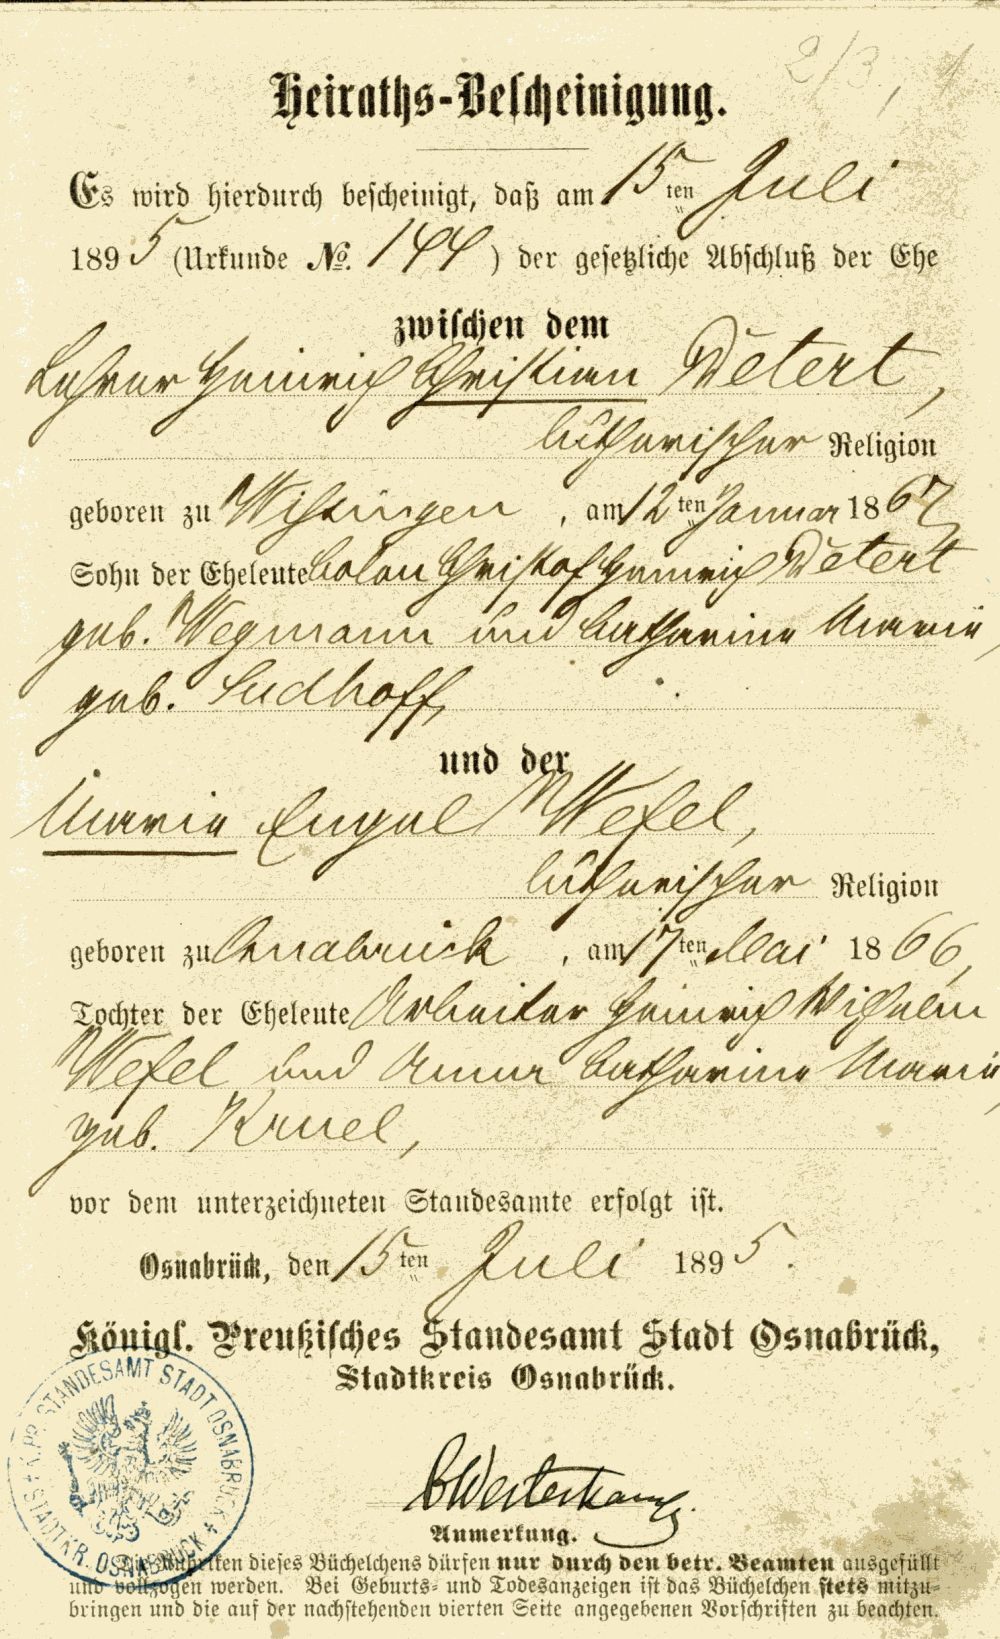 2/3, 1
Heiraths-Bescheinigung.
Es wird hierdurch bescheinigt, daß am 15ten Juli
1895 (Urkunde No. 144) der gesetzliche Abschluß der Ehe
zwischen dem
Lehrer Heinrich Christian Detert,
lutherischer Religion
geboren zu Wissingen, am 12ten Januar 1867,
Sohn der Eheleute Colon Christof Heinrich Detert
geb. Wegmann und Catharine Marie,
geb. Sudhoff,
und der
Marie Engel Wefel,
lutherischer Religion
geboren zu Osnabrück, am 17ten Mai 1866,
Tochter der Eheleute Arbeiter Heinrich Wilhelm
Wefel und Anna Catharine Marie,
geb. Kruel,
vor dem unterzeichneten Standesamte erfolgt ist.
Osnabrück, den 15ten Juli 1895.
Königl. Preußisches Standesamt Stadt Osnabrück,
Stadtkreis Osnabrück.
K. PR. STANDESAMT STADT OSNABRÜCK
STADTKR. OSNABRÜCK
BWesterkamp.
Anmerkung.
Die Rubriken dieses Büchelchens dürfen nur durch den betr. Beamten ausgefüllt
und vollzogen werden. Bei Geburts- und Todesanzeigen ist das Büchelchen stets mitzu-
bringen und die auf der nachstehenden vierten Seite angegebenen Vorschriften zu beachten.